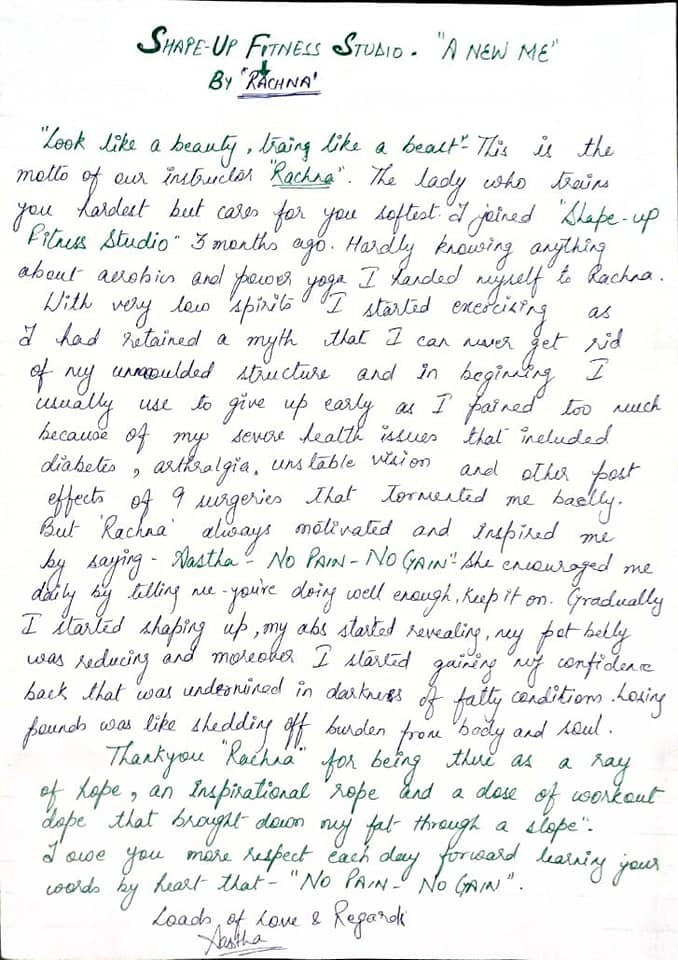 SHAPE-UP FITNESS STUDIO. "A NEW ME"
BY "RACHNA'
"Look like a beauty, traing like a beast"- This is the
motto of our instructor "Rachna". The lady who trains
you hardest but cares for you softest. I joined "Shape-up
Fitness Studio" 3 months ago. Hardly knowing anything
about aerobics and power yoga I handed myself to Rachna.
With very low spirits I started exercising as
I had retained a myth that I can never get rid
of my unmoulded structure and in beginning I
usually use to give up early as I pained too much
because of my severe health issues that included
diabetes, arthralgia, unstable vision and other post
effects of 9 surgeries that tormented me badly.
But 'Rachna' always motivated and inspired me
by saying - Aastha - NO PAIN - NO GAIN" She encouraged me
daily by telling me - you're doing well enough, keep it on. Gradually
I started shaping up, my abs started revealing, my pot belly
was reducing and moreover I started gaining my confidence
back that was undermined in darkness of fatty conditions. Losing
pounds was like shedding off burden from body and soul.
Thankyou "Rachna" for being there as a ray
of hope, an inspirational rope and a dose of workout
dope that brought down my fat through a slope".
I owe you more respect each day forward learning your
words by heart that - "NO PAIN - NO GAIN".
Loads of Love & Regards
Aastha